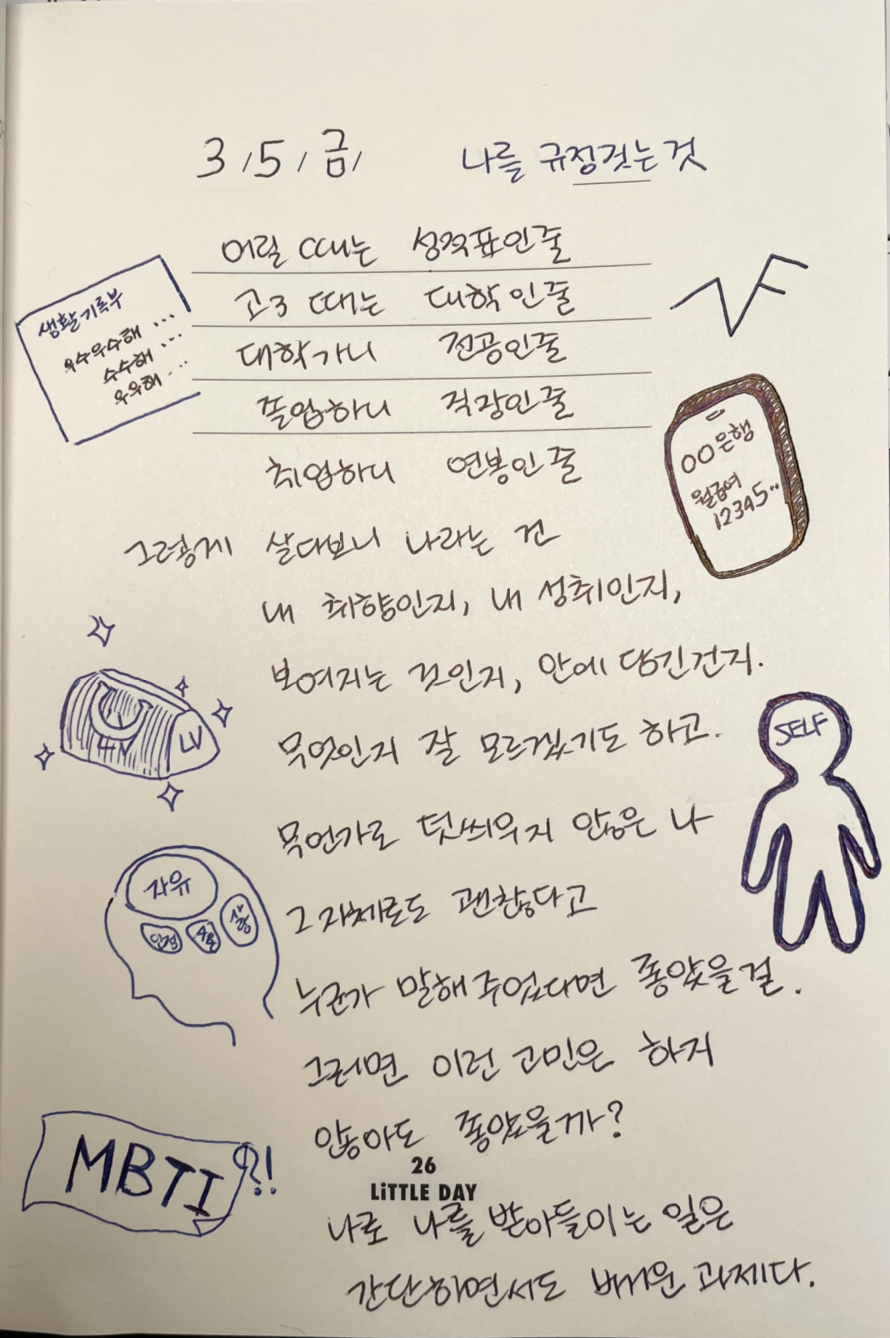 3/5/금/ 나를 규정짓는 것
어릴 때는 성적표인줄
고3 때는 대학인줄
대학가니 전공인줄
졸업하니 직장인줄
취업하니 연봉인줄
그렇게 살다보니 나라는 건
내 취향인지, 내 성취인지,
보여지는 것인지, 안에 담긴건지.
무엇인지 잘 모르겠기도 하고.
무언가로 덧씌우지 않은 나
그 자체로도 괜찮다고
누군가 말해주었다면 좋았을걸.
그러면 이런 고민은 하지
않아도 좋았을까?
26
LiTTLE DAY
나로 나를 받아들이는 일은
간단하면서도 버거운 과제다.
생활기록부
우수우수해...
수수해...
우우해...
OO은행
월급여
12345..
LV
SELF
자유
인정
MBTI?!